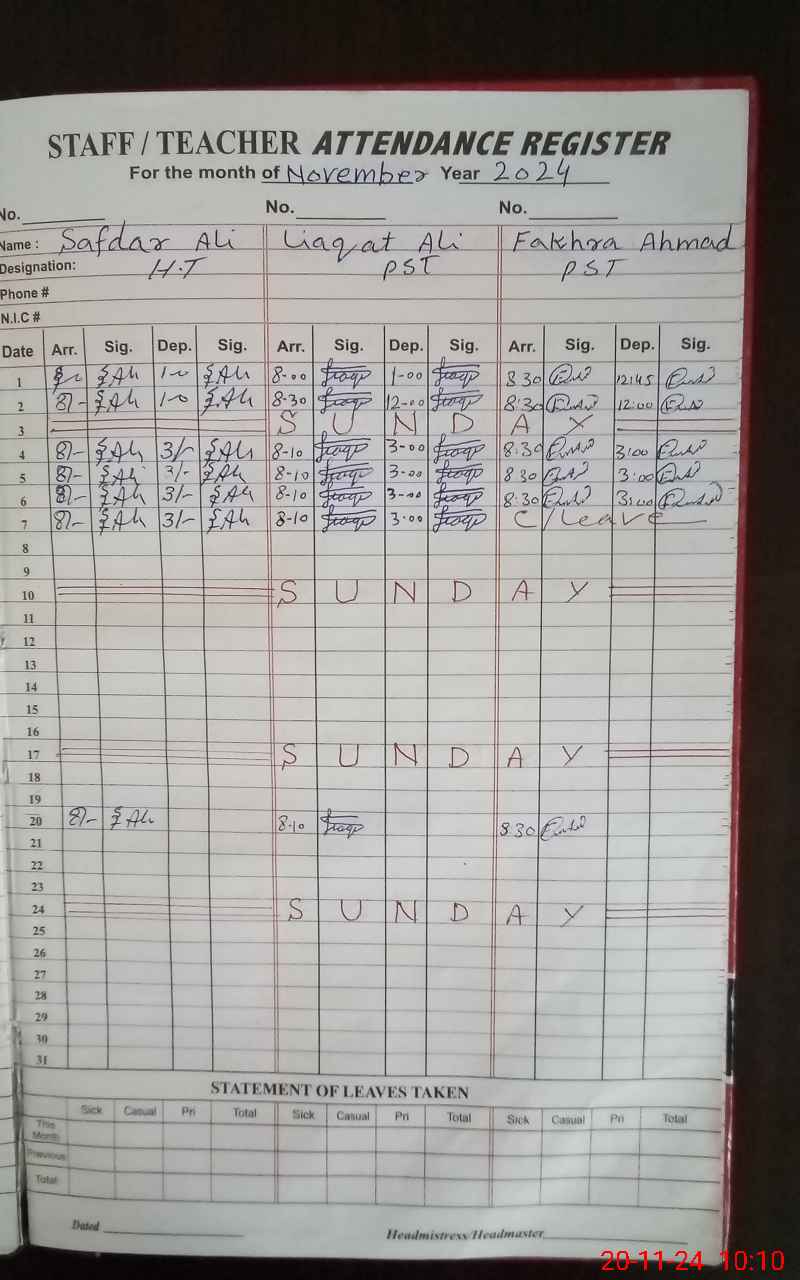 STAFF / TEACHER ATTENDANCE REGISTER
For the month of November Year 2024
No. No. No.
Name : Safdar Ali Liaqat Ali Fakhra Ahmad
Designation: H.T PST PST
Phone #
N.I.C #
Date Arr. Sig. Dep. Sig. Arr. Sig. Dep. Sig. Arr. Sig. Dep. Sig.
1 1-0 8-00 1-00 8 30 12:45
2 8/- 1-0 8-30 12-00 8:30 12:00
3 S U N D A Y
4 8/- 3/- 8-10 3-00 8:30 3:00
5 8/- 3/- 8-10 3-00 8 30 3:00
6 8/- 3/- 8-10 3-00 8:30 3:00
7 8/- 3/- 8-10 3-00 C/leave
8
9
10 S U N D A Y
11
12
13
14
15
16
17 S U N D A Y
18
19
20 8/- 8-10 8 30
21
22
23
24 S U N D A Y
25
26
27
28
29
30
31
STATEMENT OF LEAVES TAKEN
Sick Casual Pri Total Sick Casual Pri Total Sick Casual Pri Total
This Month
Previous
Total
Dated Headmistress/Headmaster
20-11-24 10:10